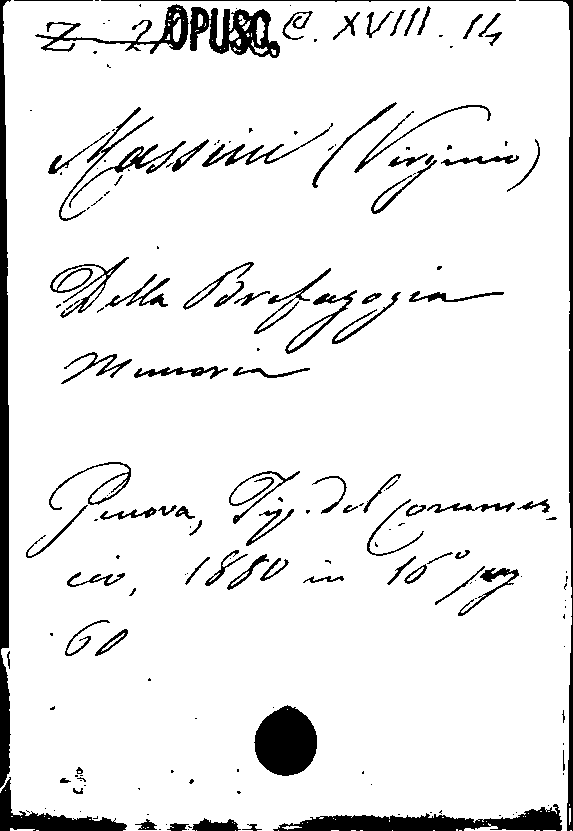 Z. 2 OPUSC. C. XVIII. 14
Massini (Virginio)
Della Brefagogia
Memoria
Genova, Tip. del Commer-
cio, 1880 in 16° pag
60